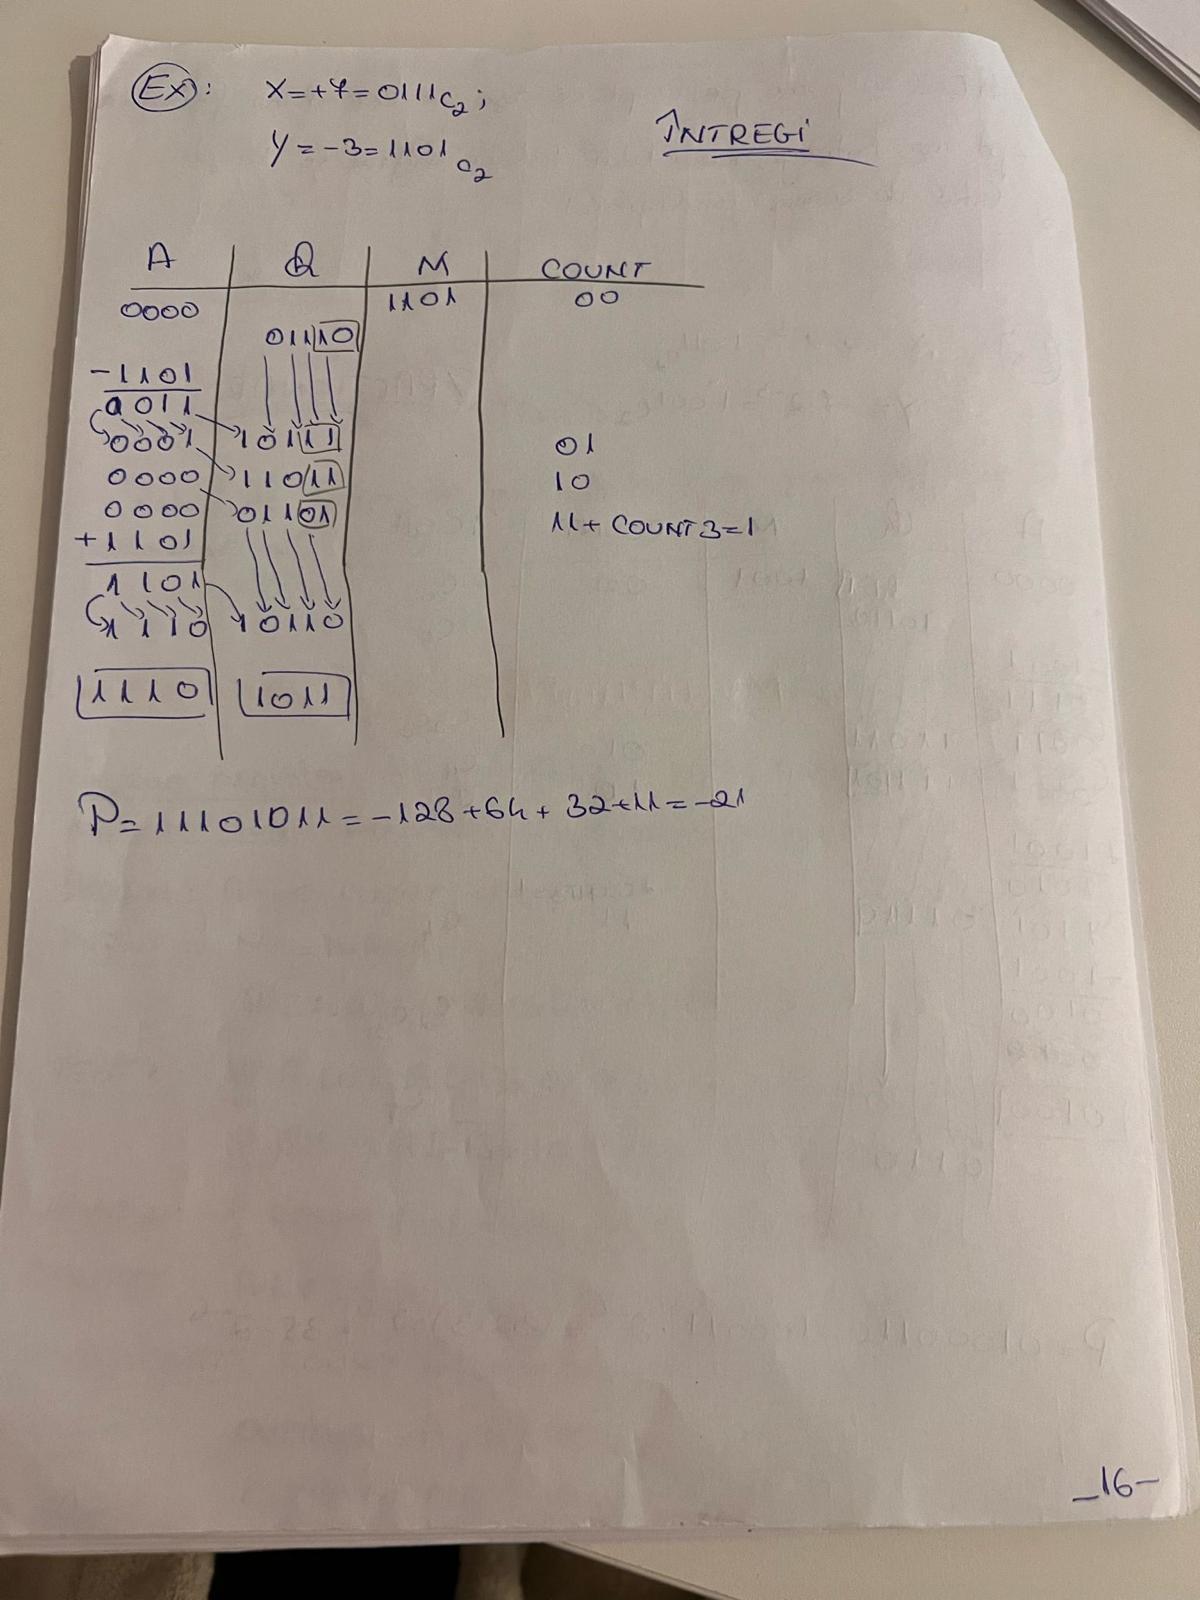 Ex: X=+7=0111C2;
Y=-3=1101C2
ÎNTREGI
A Q M COUNT
0000 1101 00
01110
-1101
0011
0001 10111 01
0000 11011 10
0000 01101 11+COUNT3=1
+1101
1101
1110 10110
1110 1011
P=11101011=-128+64+32+11=-21
-16-